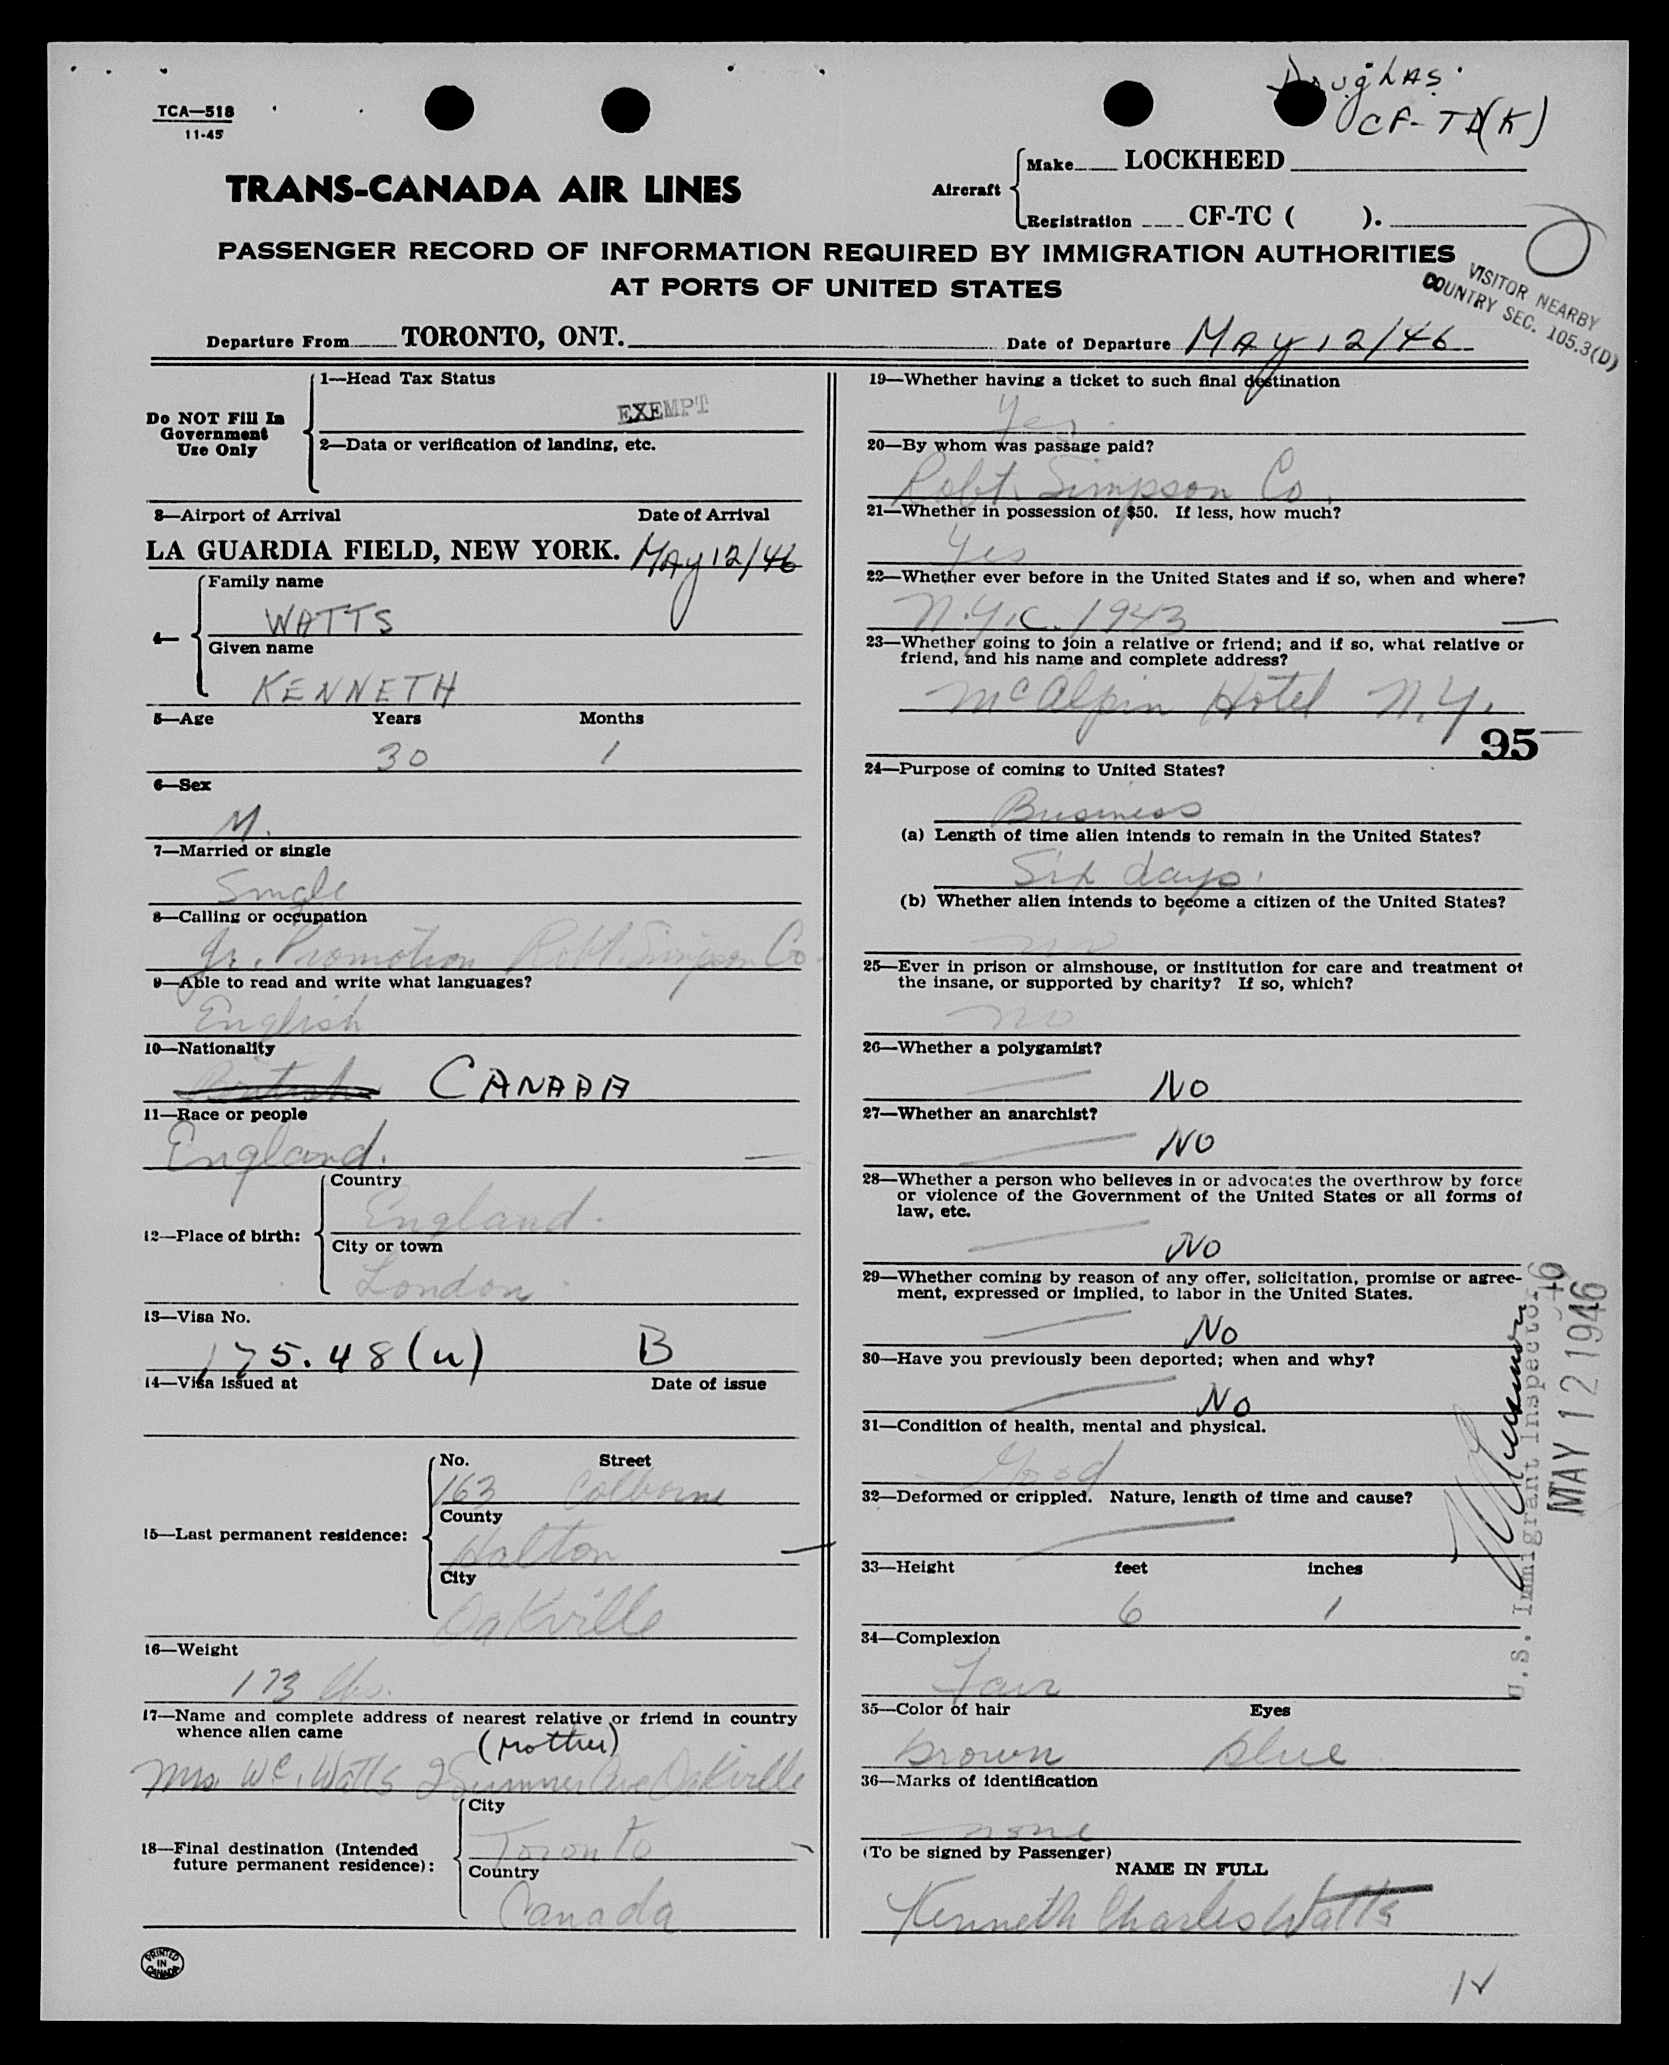 TCA—518
11-45
Douglas
CF-TD(K)
TRANS-CANADA AIR LINES
Aircraft
Make LOCKHEED
Registration CF-TC ( ).
PASSENGER RECORD OF INFORMATION REQUIRED BY IMMIGRATION AUTHORITIES
AT PORTS OF UNITED STATES
VISITOR NEARBY
COUNTRY SEC. 105.3(D)
Departure From TORONTO, ONT. Date of Departure MAY 12/46
Do NOT Fill In
Government
Use Only
1—Head Tax Status
EXEMPT
2—Data or verification of landing, etc.
3—Airport of Arrival Date of Arrival
LA GUARDIA FIELD, NEW YORK. MAY 12/46
4—
Family name
WATTS
Given name
KENNETH
5—Age Years Months
30 1
6—Sex
M.
7—Married or single
Single
8—Calling or occupation
Jr. Promotion Robt. Simpson Co.
9—Able to read and write what languages?
English
10—Nationality
British CANADA
11—Race or people
England.
12—Place of birth:
Country
England.
City or town
London
13—Visa No.
175.48(u) B
14—Visa issued at Date of issue
15—Last permanent residence:
No. Street
163 Colborne
County
Halton
City
Oakville
16—Weight
173 lbs.
17—Name and complete address of nearest relative or friend in country
whence alien came
(Mother)
Mrs WC. Watts 2 Sumner Ave Oakville
18—Final destination (Intended
future permanent residence):
City
Toronto
Country
Canada
PRINTED
IN
CANADA
19—Whether having a ticket to such final destination
Yes.
20—By whom was passage paid?
Robt. Simpson Co.
21—Whether in possession of $50. If less, how much?
Yes
22—Whether ever before in the United States and if so, when and where?
N.Y.C. 1943
23—Whether going to join a relative or friend; and if so, what relative or
friend, and his name and complete address?
McAlpin Hotel N.Y.
95
24—Purpose of coming to United States?
Business
(a) Length of time alien intends to remain in the United States?
Six days.
(b) Whether alien intends to become a citizen of the United States?
no
25—Ever in prison or almshouse, or institution for care and treatment of
the insane, or supported by charity? If so, which?
no
26—Whether a polygamist?
NO
27—Whether an anarchist?
NO
28—Whether a person who believes in or advocates the overthrow by force
or violence of the Government of the United States or all forms of
law, etc.
NO
29—Whether coming by reason of any offer, solicitation, promise or agree-
ment, expressed or implied, to labor in the United States.
No
30—Have you previously been deported; when and why?
No
31—Condition of health, mental and physical.
Good
32—Deformed or crippled. Nature, length of time and cause?
33—Height feet inches
6 1
34—Complexion
Fair
35—Color of hair Eyes
brown blue
36—Marks of identification
none
(To be signed by Passenger)
NAME IN FULL
Kenneth Charles Watts
U.S. Immigrant Inspector
46
MAY 12 1946